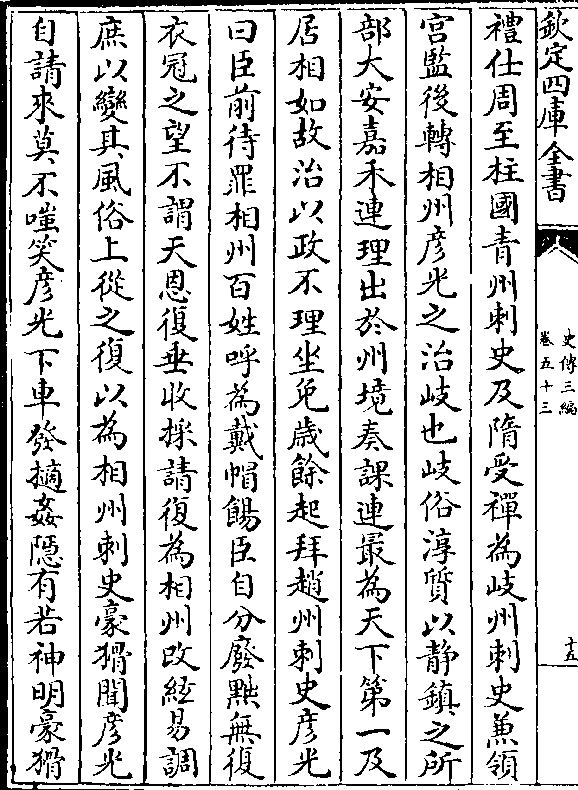 欽定四庫全書
史傳三編
卷五十三
十五
禮仕周至柱國青州刺史及隋受禪為岐州刺史兼領
宮監後轉相州彦光之治岐也岐俗淳質以静鎮之所
部大安嘉禾連理出於州境奏課連最為天下第一及
居相如故治以政不理坐免歳餘起拜趙州刺史彦光
曰臣前待罪相州百姓呼為戴帽餳臣自分廢黜無復
衣冠之望不謂天恩復垂收採請復為相州改絃易調
庶以變其風俗上從之復以為相州刺史豪猾聞彦光
自請來莫不嗤笑彦光下車發擿姦隱有若神明豪猾